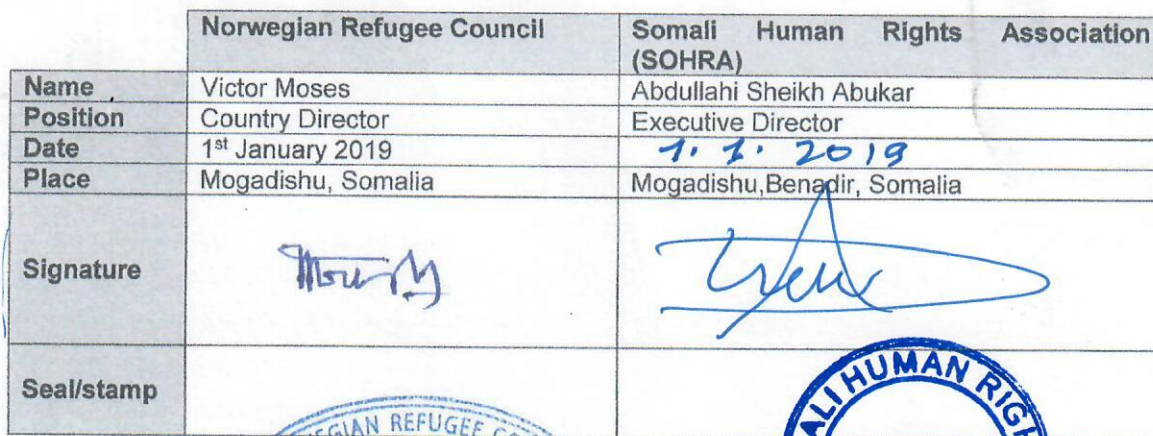 Norwegian Refugee Council
Somali Human Rights Association
(SOHRA)
Name Victor Moses Abdullahi Sheikh Abukar
Position Country Director Executive Director
Date 1st January 2019 1. 1. 2019
Place Mogadishu, Somalia Mogadishu,Benadir, Somalia
Signature
Seal/stamp
REFUGEE
HUMAN